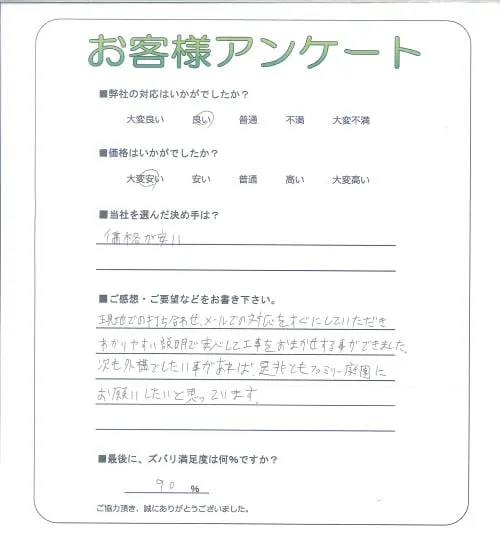 お客様アンケート
■弊社の対応はいかがでしたか？
大変良い 良い 普通 不満 大変不満
■価格はいかがでしたか？
大変安い 安い 普通 高い 大変高い
■当社を選んだ決め手は？
価格が安い
■ご感想・ご要望などをお書き下さい。
現地での打ち合わせ、メールでの対応をすぐにしていただき
わかりやすい説明で安心して工事をおまかせする事ができました。
次も外構でしたい事があれば、是非ともファミリー庭園に
お願いしたいと思っています。
■最後に、ズバリ満足度は何％ですか？
90 ％
ご協力頂き、誠にありがとうございました。